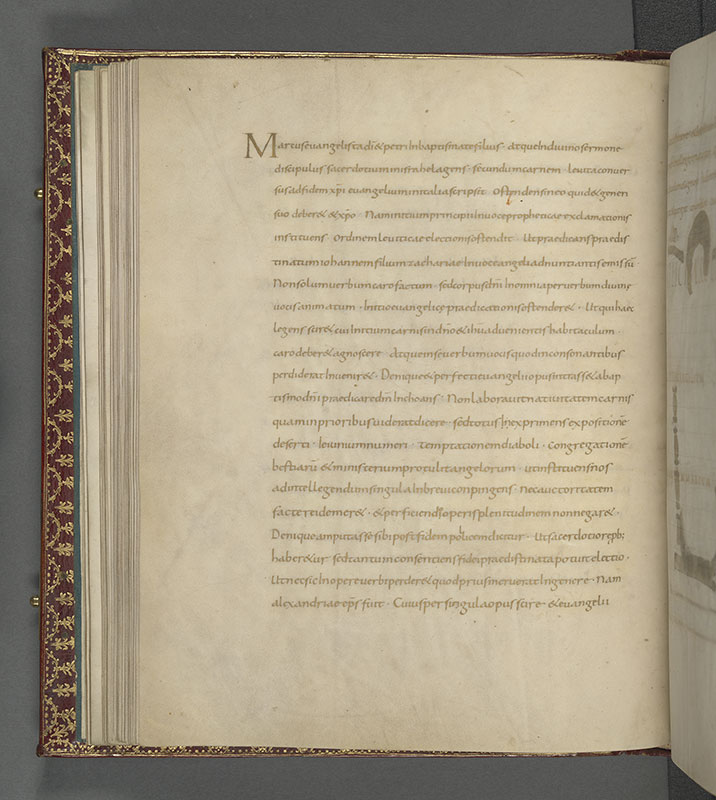 Marcus evangelista di & petri In baptismate filius · Atque In divino sermone
discipulus sacerdotium in istrahel agens · secundum carnem levita conver
sus ad fidem xpi evangelium in italia scripsit · Ostendens in eo quid & generi
suo deber& & xpo · Nam initium principii In voce propheticae exclamationis
instituens Ordinem leviticae electionis ostendit · Ut praedicans praedis
tinatum iohannem filium zachariae In voce angeli adnuntiantis emissũ
Non solum verbum caro factum · sed corpus dni In omnia per verbum divinae
vocis animatum · Initio evangelicae praedicationis ostender& · Ut qui haec
legens scir& cui Initium carnis in dño & ihu advenientis habitaculum ·
caro deber& agnoscere Atque in se verbum vocis quod in consonantibus
perdiderat Invenir& · Denique & perfecti evangelii opus intrans & a bap
tismo dni praedicare dm Inchoans · Non laboravit nativitatem carnis
quam in prioribus viderat dicere · sed totus In exprimens expositionẽ
deserti · Ieiunium numeri · Temptationem diaboli · Congregationẽ
bestiarũ & ministerium protulit angelorum · ut instituens nos
ad intellegendum singula In brevi conpingens · Nec auctoritatem
factae rei demer& · & perficiendo operis plenitudinem non negar& ·
Denique amputasse sibi post fidem pollicem dicitur · Ut sacerdotio reprob;
haber&ur sed tantum consentiens fidei praedistinata potuit electio ·
Ut nec sic In opere verbi perder& quod prius meruerat In genere · Nam
alexandriae eps fuit · Cuius per singula opus scire · & evangelii